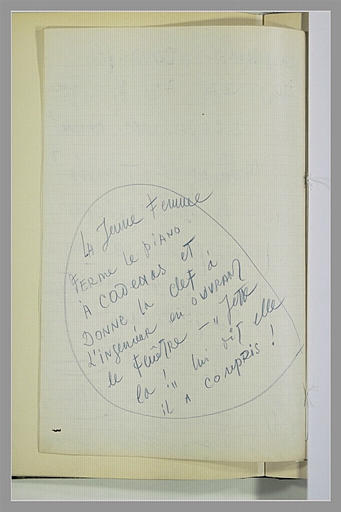 LA Jeune Femme
FERME LE PIANO
À CADENAS ET
DONNE la clef à
L'ingenieur en OUVRANT
le Fenêtre — "Jette
la ! " lui dit elle
il a compris !